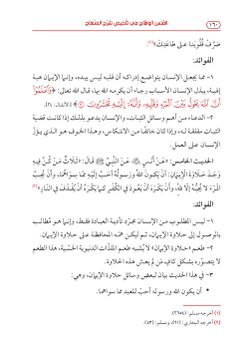 ١٦٠
القبس الوهاج في تلخيص شرح المنهاج
صَرِّفْ قُلُوبَنَا عَلَى طَاعَتِكَ»(١).
الفوائد:
١- مما يجعل الإنسان يتواضع إدراكه أن قلبه ليس بيده، وإنما الإيمان هبة
إلهية، يبذل الإنسان الأسباب رجاء أن يكرمه الله بها، قال تعالى: ﴿وَاعْلَمُوا
أَنَّ اللَّهَ يَحُولُ بَيْنَ الْمَرْءِ وَقَلْبِهِ وَأَنَّهُ إِلَيْهِ تُحْشَرُونَ﴾ [الأنفال: ٢٤].
٢- الدعاء من أهم وسائل الثبات، والإنسان يدعو بصدق إذا كانت قضية
الثبات مقلقة له، وإذا كان خائفًا من الانتكاس، وهذا الخوف هو الذي يؤزّ
الإنسان للدعاء.
الحديث الخامس: «عَنْ أَنَسٍ، عَنِ النَّبِيِّ ﷺ قَالَ: «ثَلَاثٌ مَنْ كُنَّ فِيهِ
وَجَدَ حَلَاوَةَ الْإِيمَانِ: أَنْ يَكُونَ اللهُ وَرَسُولُهُ أَحَبَّ إِلَيْهِ مِمَّا سِوَاهُمَا، وَأَنْ يُحِبَّ
الْمَرْءَ لَا يُحِبُّهُ إِلَّا لِلهِ، وَأَنْ يَكْرَهَ أَنْ يَعُودَ فِي الْكُفْرِ كَمَا يَكْرَهُ أَنْ يُقْذَفَ فِي النَّارِ»(٢)
الفوائد:
١- ليس المطلوب من الإنسان مجرد تأدية العبادة فقط، وإنما هو مُطالب
بالوصول إلى حلاوة الإيمان، ثم لتكن همّه المحافظة على حلاوة الإيمان.
٢- طعم «حلاوة الإيمان» لا يُشبه طعم الملذات الدنيوية الحسّية، هذا الطعم
لا يتصوره بشكل كافٍ مَن لم يعش هذه الحلاوة.
٣- في هذا الحديث بيان لبعض وسائل حلاوة الإيمان، وهي:
• أن يكون الله ورسوله أحبّ للعبد مما سواهما.
(١) أخرجه مسلم: (٢٦٥٤).
(٢) أخرجه البخاري: (٢١)، ومسلم: (٤٣).